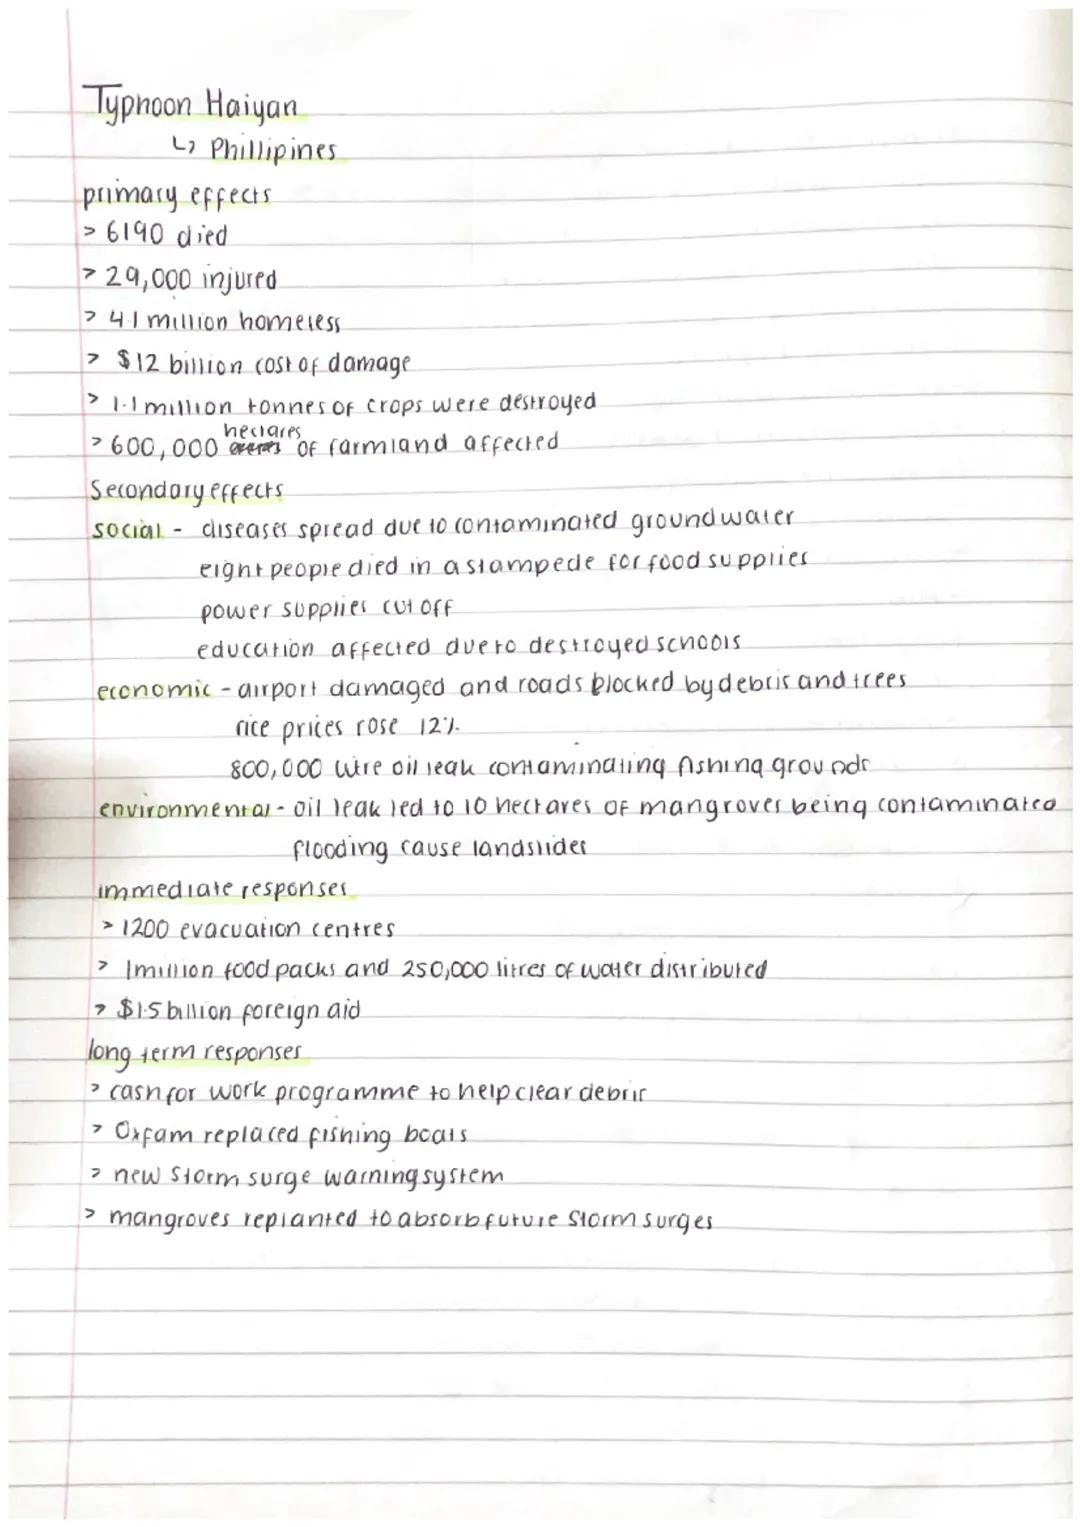 Typhoon Haiyan
↳ Phillipines
primary effects
> 6190 died
> 29,000 injured
> 4.1 million homeless
> $12 billion cost of damage
> 1.1 million tonnes of crops were destroyed
hectares
> 600,000 of farmland affected
Secondary effects
social - diseases spread due to contaminated groundwater
eight people died in a stampede for food supplies
power supplies cut off
education affected due to destroyed schools
economic - airport damaged and roads blocked by debris and trees
rice prices rose 12%.
800,000 litre oil leak contaminating fishing grounds
environmental - oil leak led to 10 hectares of mangroves being contaminated
flooding cause landslides
immediate responses
> 1200 evacuation centres
> 1 million food packs and 250,000 litres of water distributed
> $1.5 billion foreign aid
long term responses
> cash for work programme to help clear debris
> Oxfam replaced fishing boats
> new storm surge warning system
> mangroves replanted to absorb future storm surges